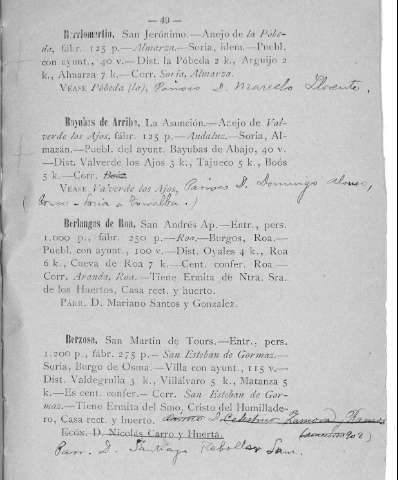 — 49 —
Barriomartín, San Jerónimo.—Anejo de la Póbe-
da, fábr. 125 p.—Almarza.—Soria, idem.—Puebl.
con ayunt., 40 v.—Dist. la Póbeda 2 k., Arguijo 2
k., Almarza 7 k.—Corr. Soria, Almarza.
VÉASE Póbeda (la), Párroco D. Marcelo Llorente.
Bayubas de Arriba, La Asunción.—Anejo de Val-
verde los Ajos, fábr. 125 p.—Andaluz.—Soria, Al-
mazán.—Puebl. del ayunt. Bayubas de Abajo, 40 v.
—Dist. Valverde los Ajos 3 k., Tajueco 5 k., Boós
5 k.—Corr. Boós
VÉASE Valverde los Ajos, Párroco D. Domingo Alonso,
(Corr.—Soria a Torralba.)
Berlangas de Roa, San Andrés Ap.—Entr., pers.
1.000 p., fábr. 250 p.—Roa.—Burgos, Roa.—
Puebl. con ayunt., 100 v.—Dist. Oyales 4 k., Roa
6 k., Cueva de Roa 7 k.—Cent. confer. Roa.—
Corr. Aranda, Roa.—Tiene Ermita de Ntra. Sra.
de los Huertos, Casa rect. y huerto.
PARR. D. Mariano Santos y Gonzalez.
Berzosa, San Martin de Tours.—Entr., pers.
1.200 p., fábr. 275 p.—San Esteban de Gormaz.—
Soria, Burgo de Osma.—Villa con ayunt., 115 v.—
Dist. Valdegrulla 3 k., Villálvaro 5 k., Matanza 5
k.—Es cent. confer.—Corr. San Esteban de Gor-
maz.—Tiene Ermita del Smo. Cristo del Humillade-
ro, Casa rect. y huerto. D. Celestino Zamora
ECÓN. D. Nicolás Carro y Huerta.
Parr. D. Santiago Rebollar Sanz.